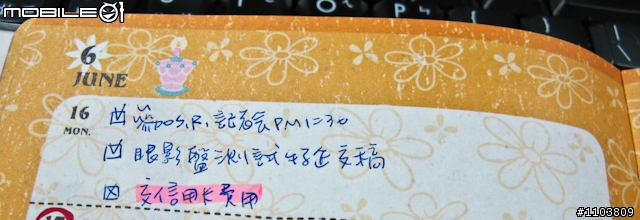 MOBILE01
6
JUNE
16
MON.
記者會PM1:30
眼影盤測試好企交稿
交信用卡費用
#1103809